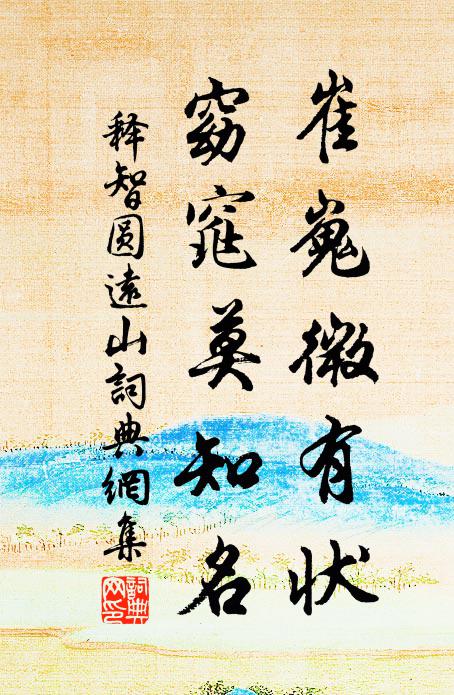 崔嵬微有状
窈窕莫知名
释智圆遠山詞典網集
詞典网印